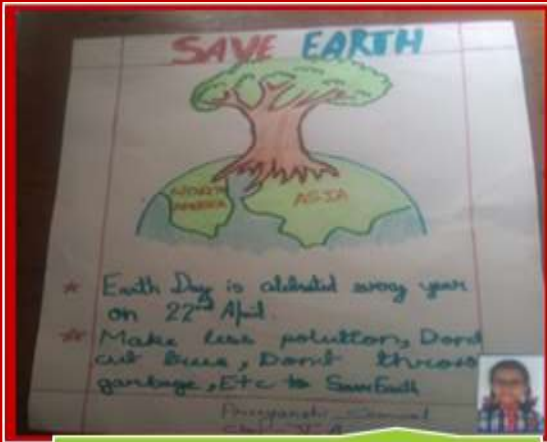 SAVE EARTH
NORTH
AMERICA
ASIA
Earth Day is celebrated every year
on 22nd April.
Make less polution, Dond
cut trees, Dont throw
garbage, Etc to Save Earth